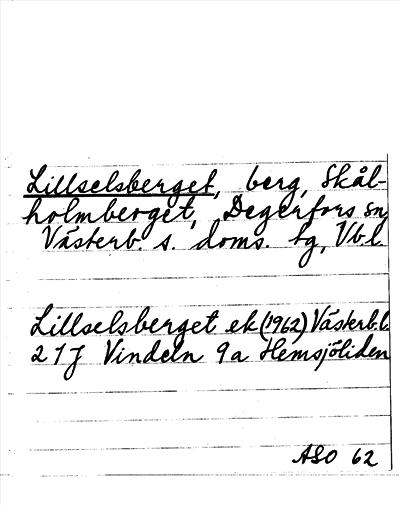 Lillselsberget, berg, Skål-
holmberget, Degerfors sn,
Västerb. s. doms. tg, Vbl.
Lillselsberget ek (1962) Västerb. l.
21J Vindeln 9a Hemsjöliden
ASO 62